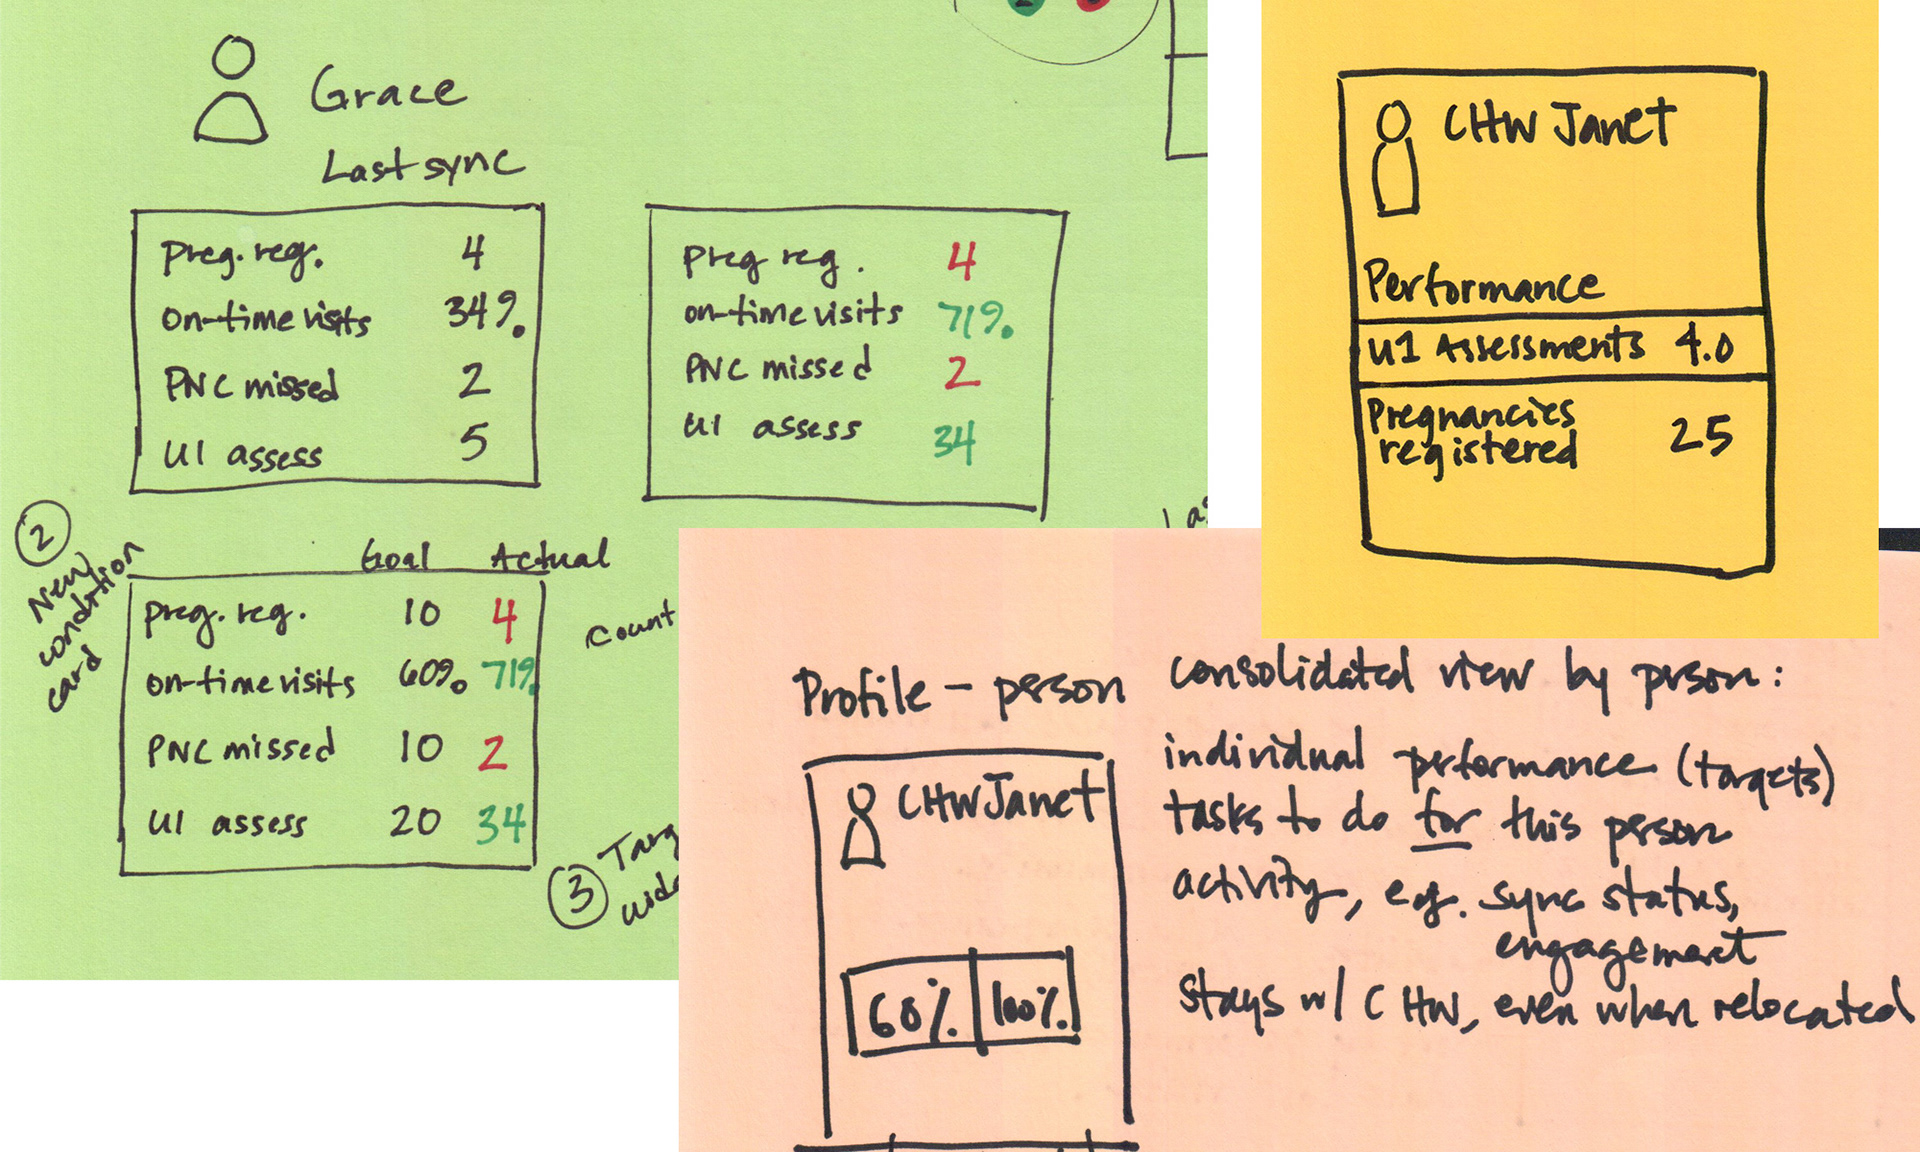 Grace
Last sync
Preg. reg. 4
on-time visits 34%
PNC missed 2
U1 assess 5
Preg reg. 4
on-time visits 71%
PNC missed 2
U1 assess 34
2
New
condition
card
Goal Actual
Preg. reg. 10 4
on-time visits 60% 71%
PNC missed 10 2
U1 assess 20 34
count
3
CHW Janet
Performance
U1 Assessments 4.0
Pregnancies
registered 25
Profile – person
CHW Janet
60% 100%
consolidated view by person:
individual performance (targets)
tasks to do for this person
activity, e.g. sync status,
engagement
stays w/ CHW, even when relocated